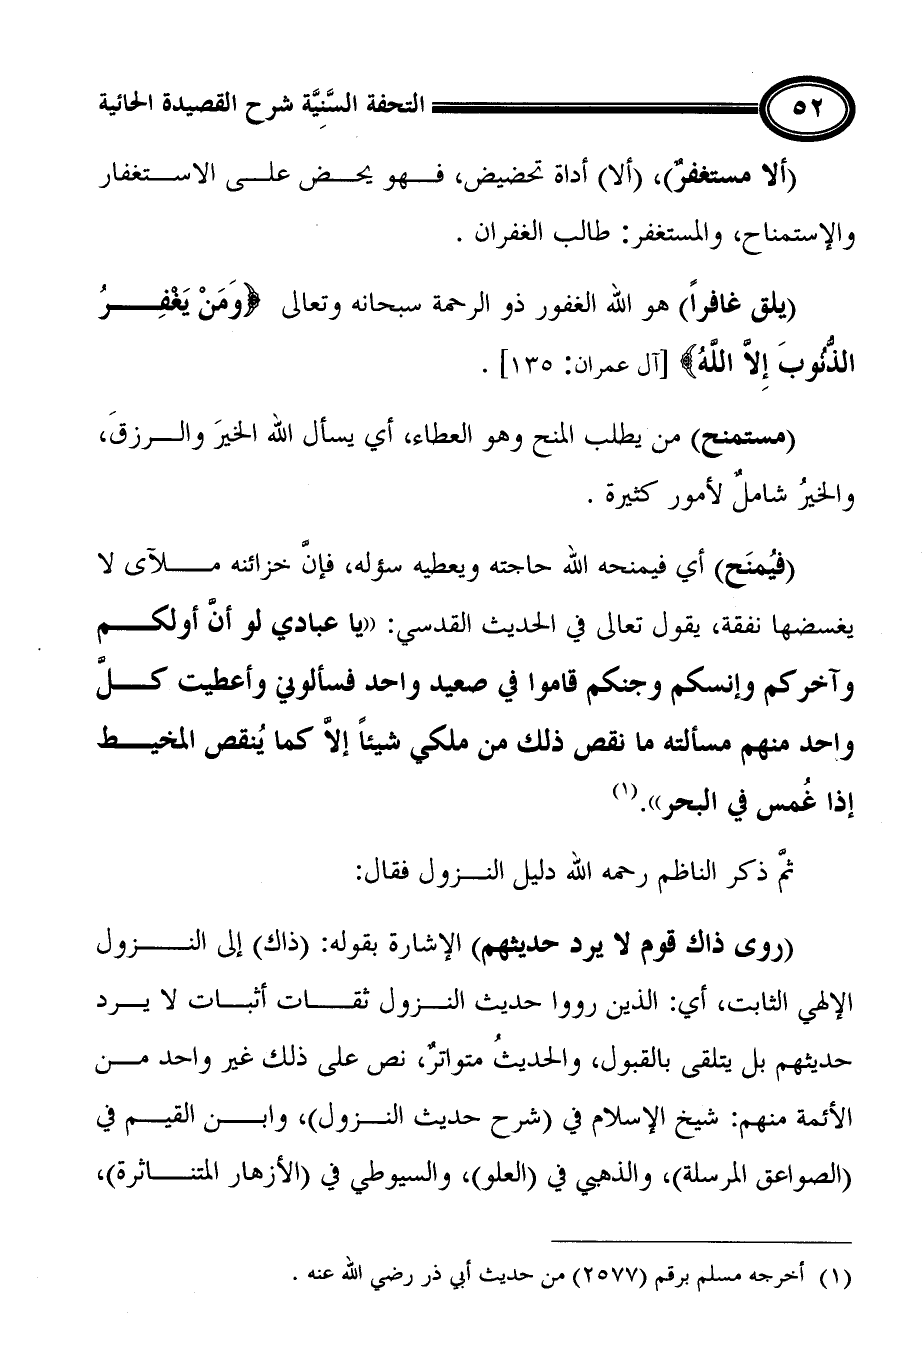 ٥٢ التحفة السَّنِيَّة شرح القصيدة الحائية
(ألا مستغفرٌ)، (ألا) أداة تحضيض، فهو يحض على الاستغفار
والإستمناح، والمستغفر: طالب الغفران .
(يلق غافراً) هو الله الغفور ذو الرحمة سبحانه وتعالى ﴿وَمَنْ يَغْفِرُ
الذُّنُوبَ إِلاَّ اللَّهُ﴾ [آل عمران: ١٣٥] .
(مستمنح) من يطلب المنح وهو العطاء، أي يسأل الله الخيرَ والرزقَ،
والخيرُ شاملٌ لأمور كثيرة .
(فيُمنَح) أي فيمنحه الله حاجته ويعطيه سؤله، فإنَّ خزائنه ملآى لا
يغسضها نفقة، يقول تعالى في الحديث القدسي: «يا عبادي لو أنَّ أولكم
وآخركم وإنسكم وجنكم قاموا في صعيد واحد فسألوني وأعطيت كلَّ
واحد منهم مسألته ما نقص ذلك من ملكي شيئاً إلاَّ كما يُنقص المخيط
إذا غُمس في البحر».(١)
ثمَّ ذكر الناظم رحمه الله دليل النزول فقال:
(روى ذاك قوم لا يرد حديثهم) الإشارة بقوله: (ذاك) إلى النزول
الإلهي الثابت، أي: الذين رووا حديث النزول ثقات أثبات لا يرد
حديثهم بل يتلقى بالقبول، والحديثُ متواترٌ، نص على ذلك غير واحد من
الأئمة منهم: شيخ الإسلام في (شرح حديث النزول)، وابن القيم في
(الصواعق المرسلة)، والذهبي في (العلو)، والسيوطي في (الأزهار المتناثرة)،
(١) أخرجه مسلم برقم (٢٥٧٧) من حديث أبي ذر رضي الله عنه .